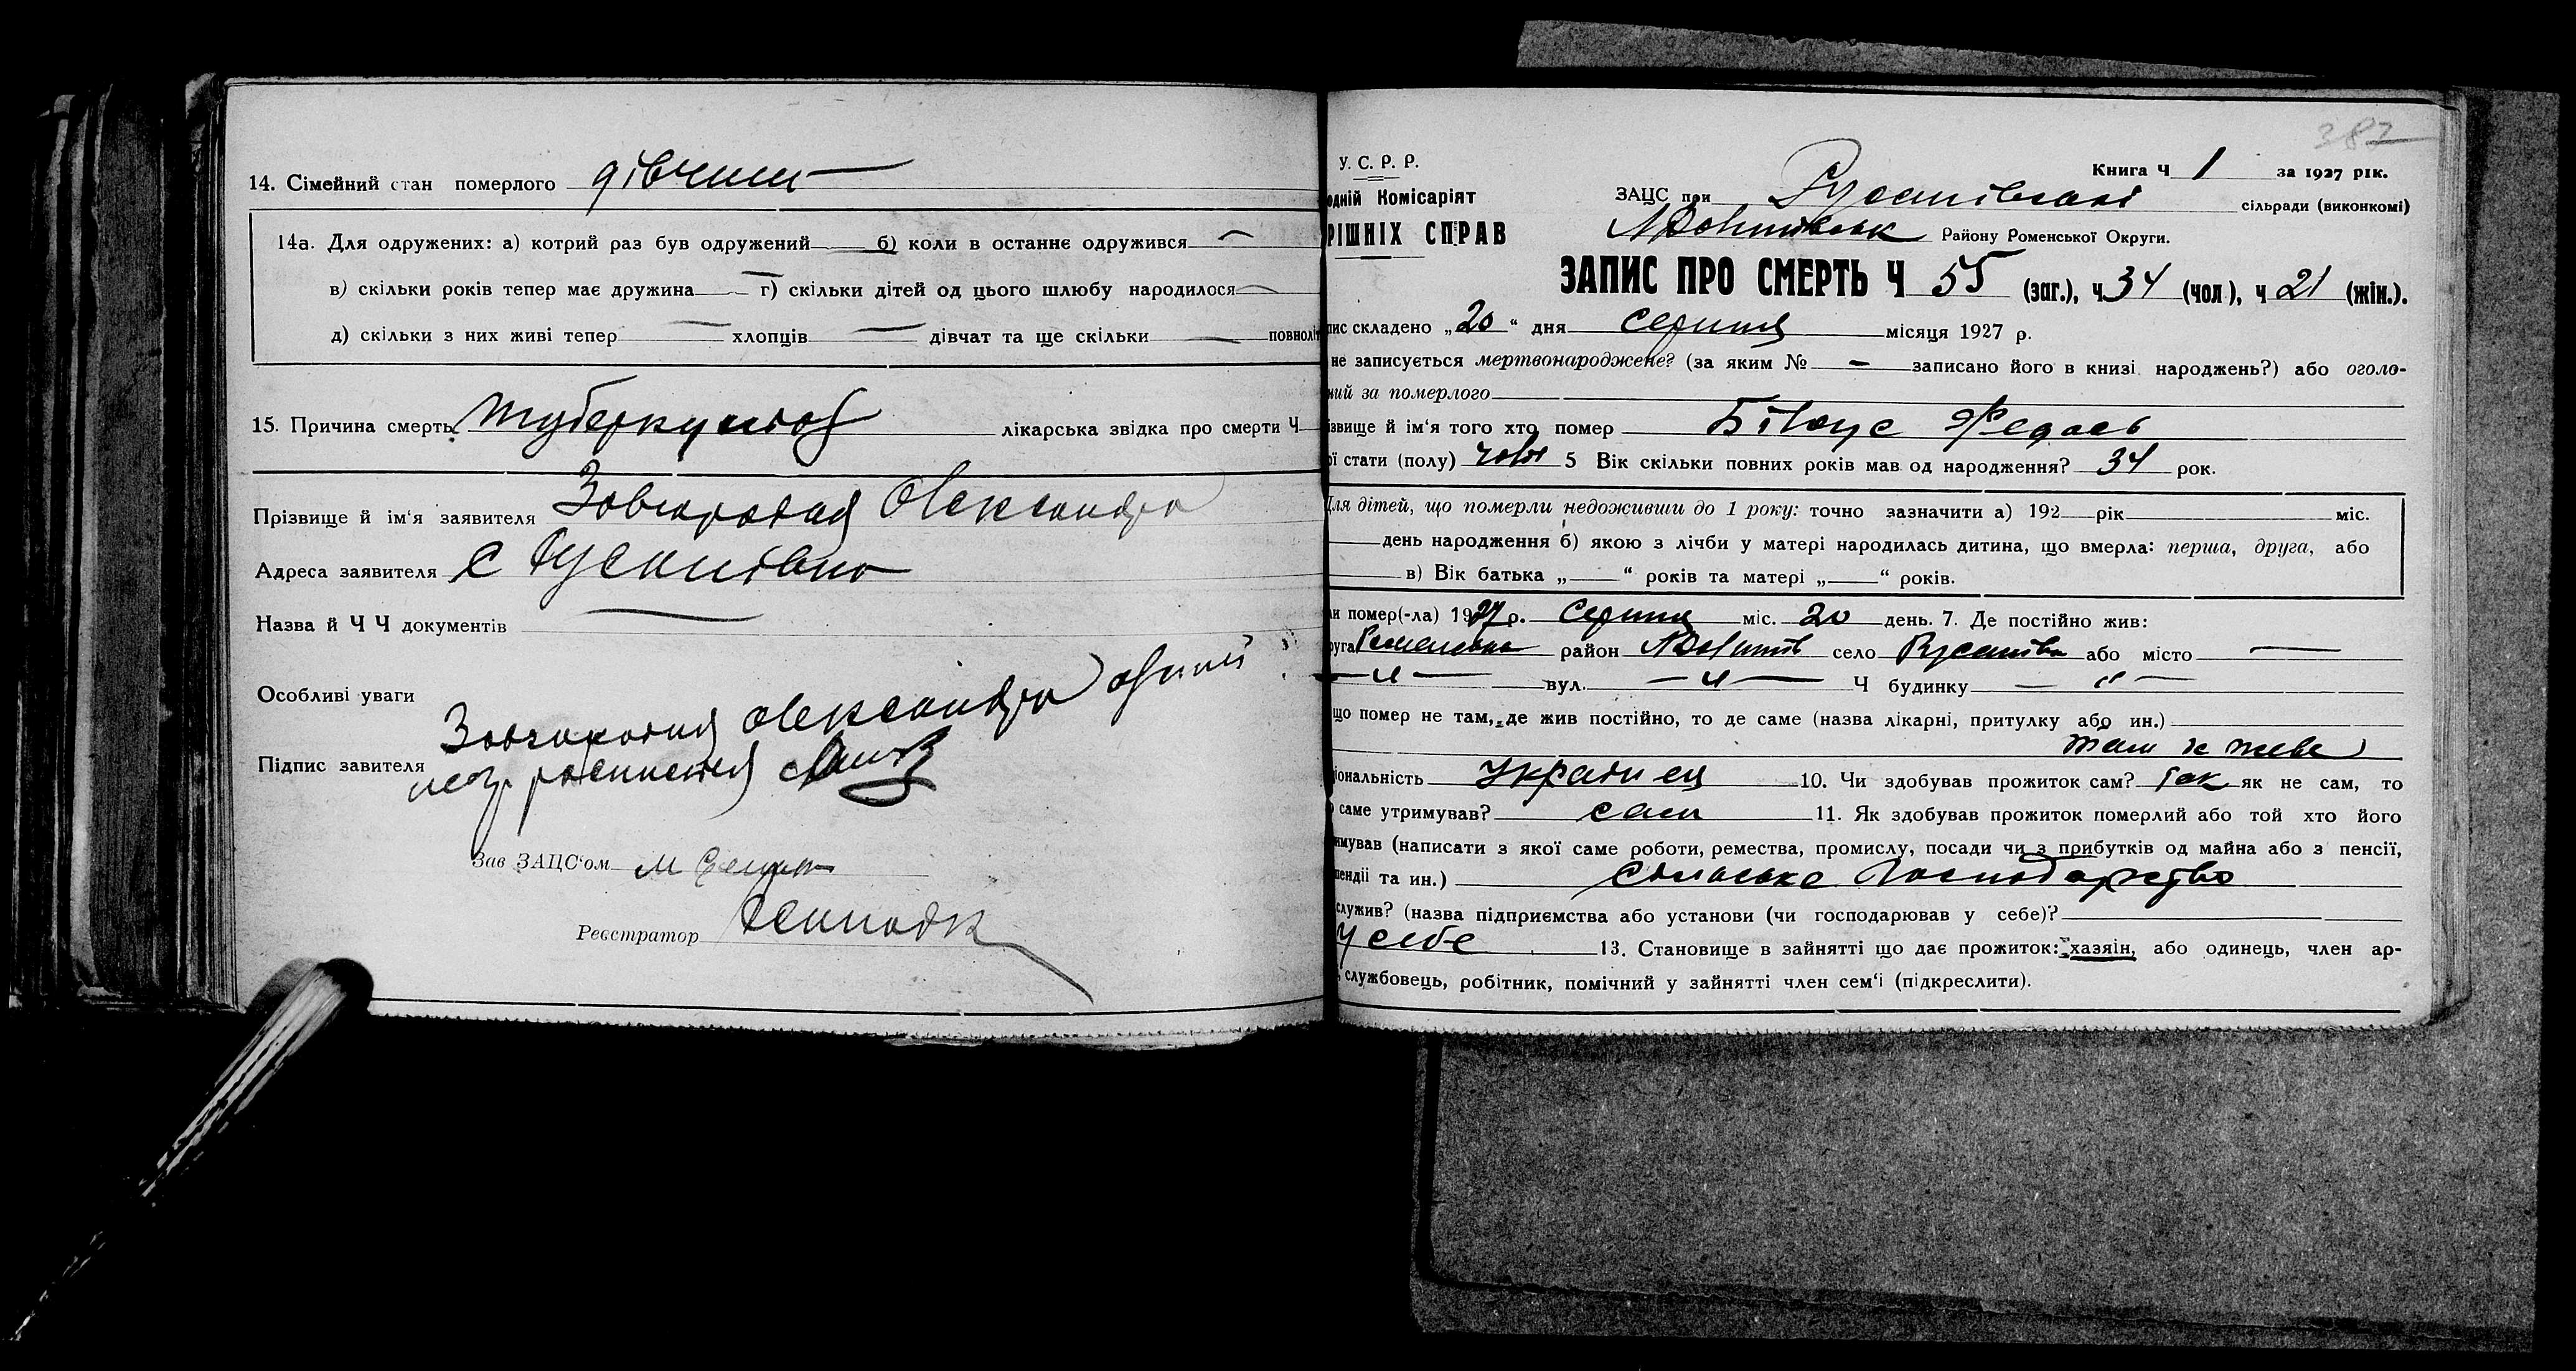 14. Сімейний стан померлого дівчина
14а. Для одружених: а) котрий раз був одружений б) коли в останнє одружився
в) скільки років тепер має дружина г) скільки дітей од цього шлюбу народилося
д) скільки з них живі тепер хлопців дівчат та ще скільки повноліт
15. Причина смерть туберкульоз лікарська звідка про смерти Ч
Прізвище й ім‘я заявителя Олександра
Адреса заявителя с Русанівка
Назва й Ч Ч документів
Особливі уваги
Олександра
Підпис завителя
Зав ЗАЦС‘ом
Реєстратор
382
У. С. Р. Р.
Книга Ч 1 за 1927 рік.
одній Комісаріят
ЗАЦС при Русанівській сільради (виконкомі)
РІШНІХ СПРАВ
Району Роменської Округи.
ЗАПИС ПРО СМЕРТЬ Ч 55 (заг.), ч 34 (чол), ч 21 (жін.).
пис складено „20“ дня серпня місяця 1927 р.
не записується мертвонароджене? (за яким № — записано його в книзі народжень?) або оголо-
ний за померлого
ізвище й ім‘я того хто помер Білоус Федось
ої стати (полу) чолов 5 Вік скільки повних років мав од народження? 34 рок.
Для дітей, що померли недоживши до 1 року: точно зазначити а) 192 рік міс.
день народження б) якою з лічби у матері народилась дитина, що вмерла: перша, друга, або
в) Вік батька „ “ років та матері „ “ років.
ли помер(-ла) 1927 р. Серпня міс. 20 день. 7. Де постійно жив:
руга Роменська район село Русанівка або місто —
— „ — вул. — „ — Ч будинку — „ —
що помер не там, де жив постійно, то де саме (назва лікарні, притулку або ин.)
там же
іональність Українец 10. Чи здобував прожиток сам? так як не сам, то
саме утримував? сам 11. Як здобував прожиток померлий або той хто його
имував (написати з якої саме роботи, ремества, промислу, посади чи з прибутків од майна або з пенсії,
пендії та ин.) сільське господарство
служив? (назва підприємства або установи (чи господарював у себе)?
у себе 13. Становище в зайнятті що дає прожиток: хазяін, або одинець, член ар-
службовець, робітник, помічний у зайнятті член сем‘і (підкреслити).